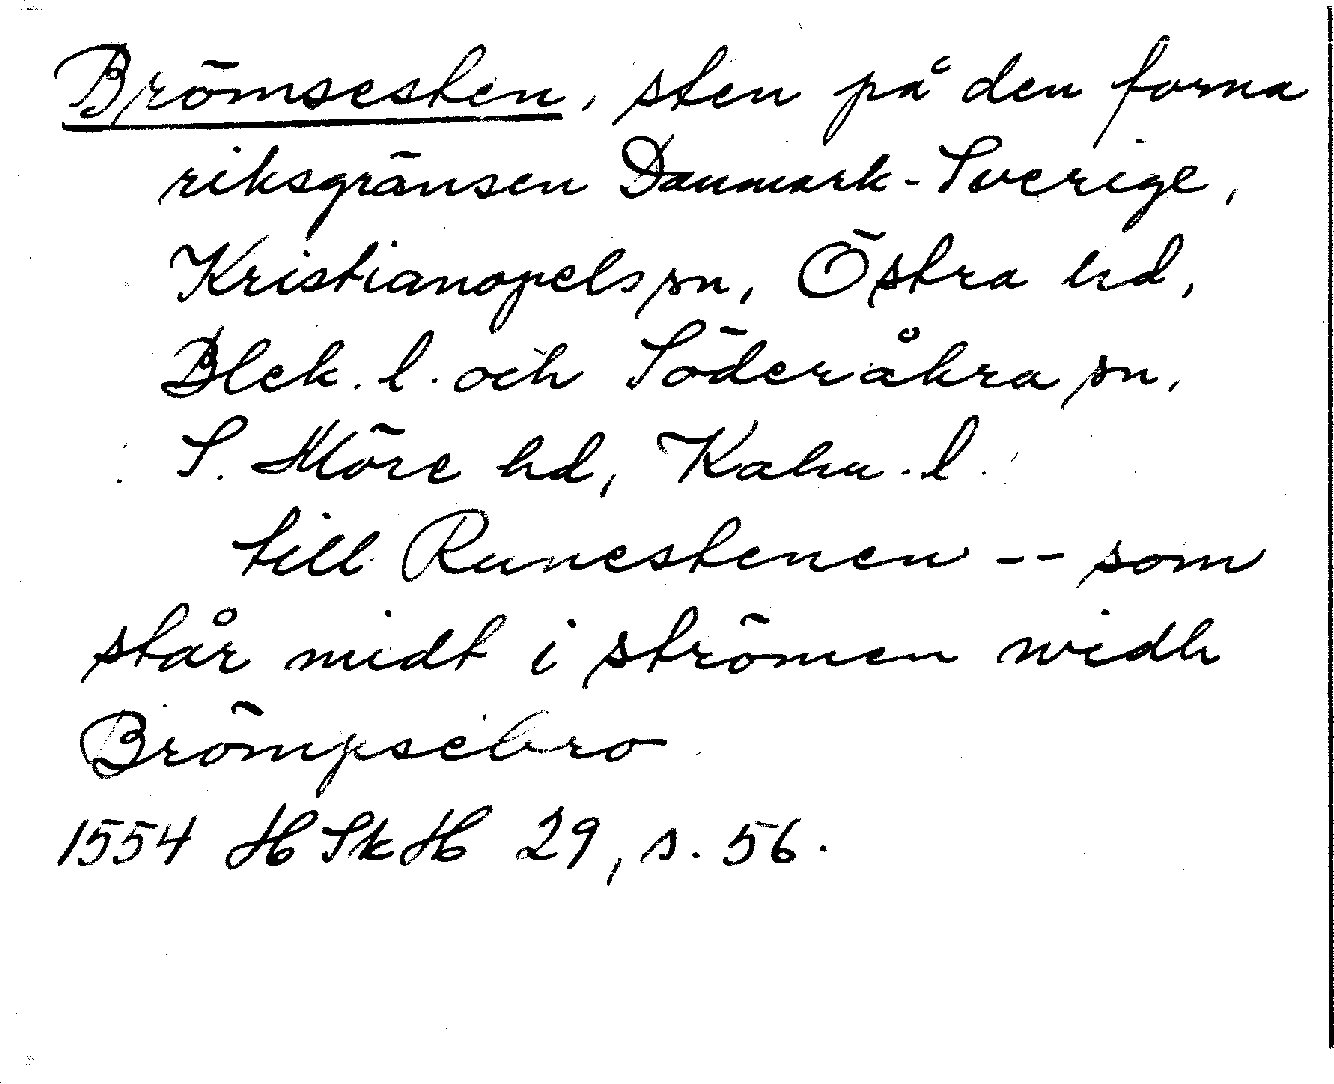 Brömsesten, sten på den forna
riksgränsen Danmark-Sverige,
Kristianopels sn, Östra hd,
Blek. l. och Söderåkra sn,
S. Möre hd, Kalm. l.
till Runestenen -- som
står midt i strömen widh
Brömpsebro
1554 HSkH 29, s. 56.